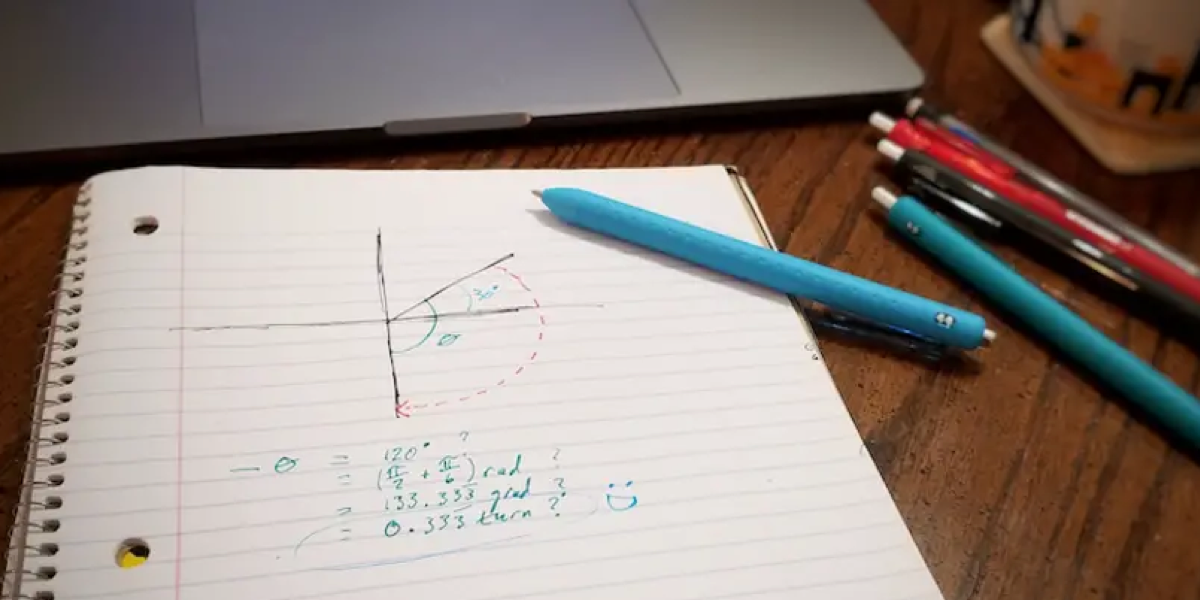 30°
θ
- θ = 120° ?
= (π/2 + π/6) rad ?
= 133.333 grad ?
= 0.333 turn ?